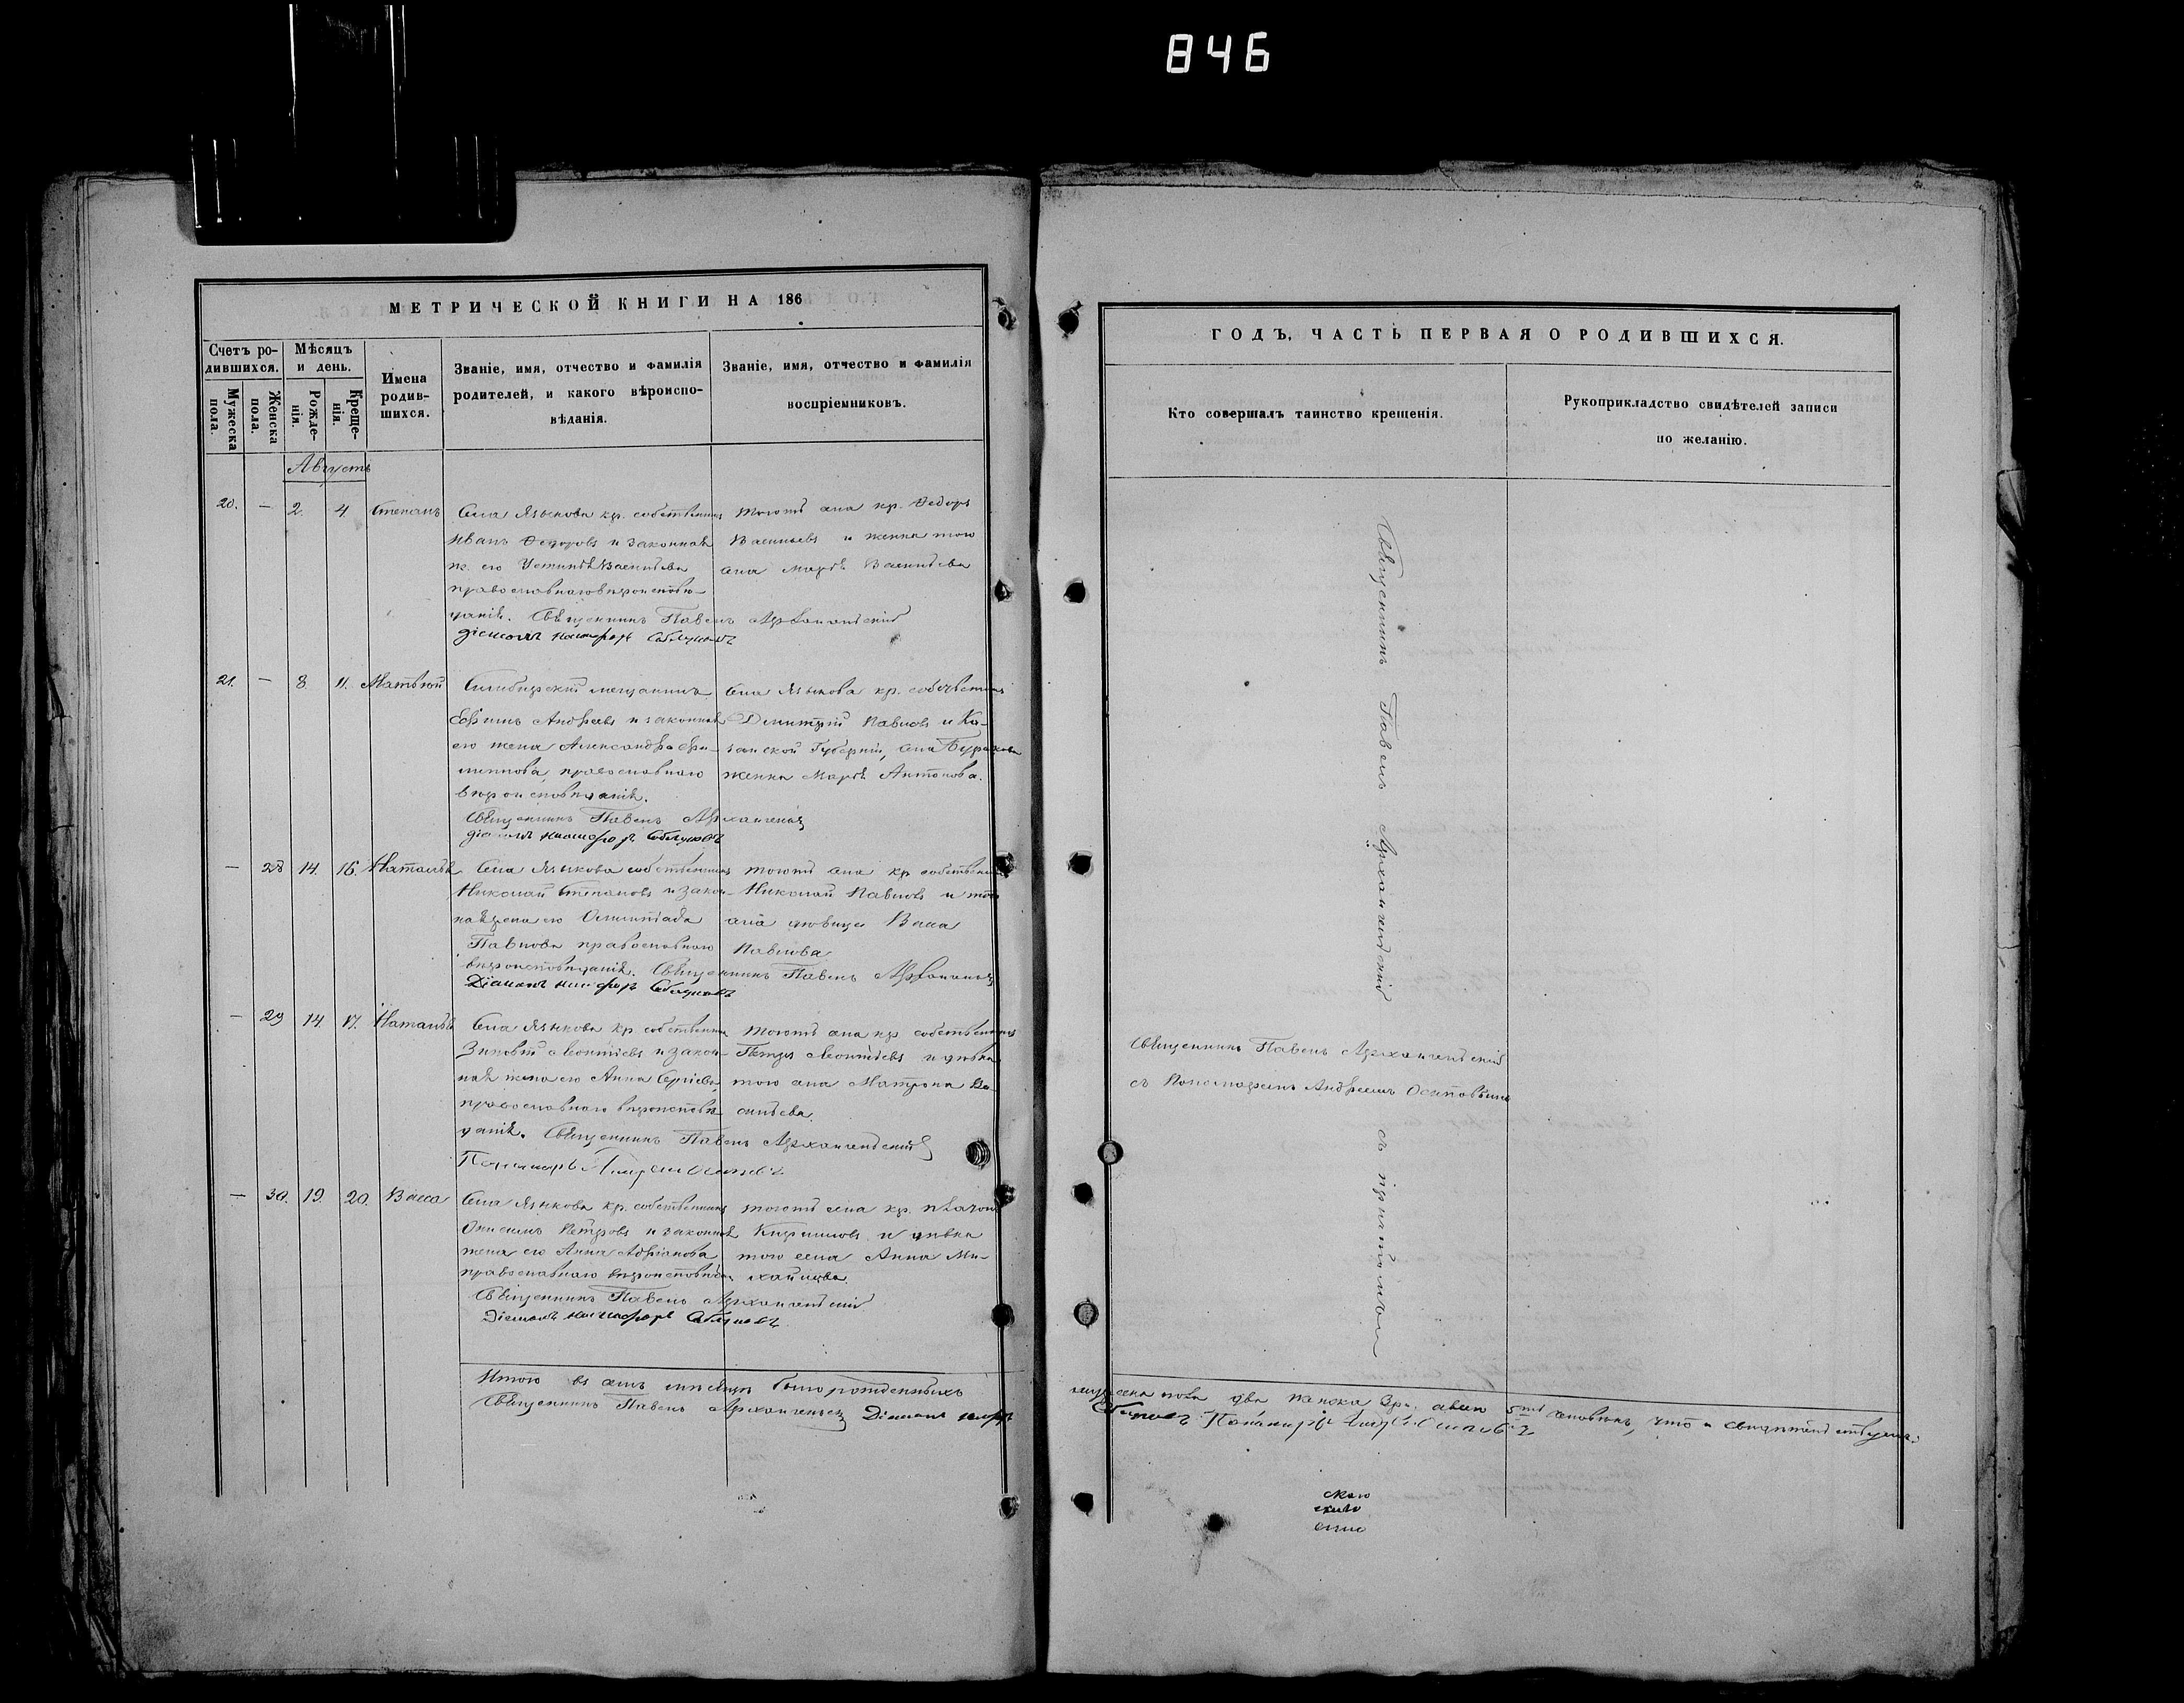 846
МЕТРИЧЕСКОЙ КНИГИ НА 186
Счетъ ро-
дившихся.
Мѣсяцъ
и день.
Мужеска
пола.
Женска
пола.
Рожде-
нія.
Креще-
нія.
Имена
родив-
шихся.
Званіе, имя, отчество и фамилія
родителей, и какого вѣроиспо-
вѣданія.
Званіе, имя, отчество и фамилія
воспріемниковъ.
Августъ
20. — 2. 4. Степанъ
Села Языкова кр. собственникъ
Иванъ Федоровъ и законная
ж. его Устинія Васильева
православнаго вѣроисповѣ-
данія. Священникъ Павелъ Архангельскій
Діаконъ Никифоръ
Тогожъ села кр. Федоръ
Васильевъ и женка того
села Марѳа Васильева
21. — 8. 11. Матвѣй
Симбирскій мещанинъ
Ефимъ Андреевъ и законная
его жена Александра Фи-
липпова, православнаго
вѣроисповѣданія.
Священникъ Павелъ Архангельскій
Діаконъ Никифоръ
Села Языкова кр. собственникъ
Димитрій Павловъ и Ка-
занской Губерніи, села
женка Антонова.
— 28 14. 16. Наталья
Села Языкова собственникъ
Николай Степановъ и закон-
ная жена его Олимпіада
Павлова православнаго
вѣроисповѣданія. Священникъ Павелъ Архангельскій
Діаконъ Никифоръ
Тогожъ села кр собственникъ
Николай Павловъ и того
села дѣвица Васса
Павлова
— 29 14. 17. Наталья
Села Языкова кр собственникъ
Зиновій Леонтіевъ и закон-
ная жена его Анна Сергіева
православнаго вѣроисповѣ-
данія. Священникъ Павелъ Архангельскій
Пономарь Андрей Осиповъ
Тогожъ села кр собственникъ
Петръ Леонтіевъ и дѣвка
того села Матрона Ва-
сильева
— 30. 19. 20. Васса
Села Языкова кр. собственникъ
Онисимъ Петровъ и законная
жена его Анна Адріанова
православнаго вѣроисповѣдан
Священникъ Павелъ Архангельскій
Діаконъ Никифоръ
Тогожъ села кр.
Кирилловъ и дѣвка
того села Анна Ми-
хайлова.
Итого въ семъ мѣсяцѣ было рожденныхъ
Священникъ Павелъ Архангельскій Діаконъ
ГОДЪ, ЧАСТЬ ПЕРВАЯ О РОДИВШИХСЯ.
Кто совершалъ таинство крещенія.
Рукоприкладство свидѣтелей записи
по желанію.
Священникъ Павелъ Архангельскій съ причтомъ
Священникъ Павелъ Архангельскій
съ Пономаремъ Андреемъ Осиповымъ
пола два женска три, а всего человѣкъ, что и свидѣтельствуемъ:
Пономарь Андрей Осиповъ